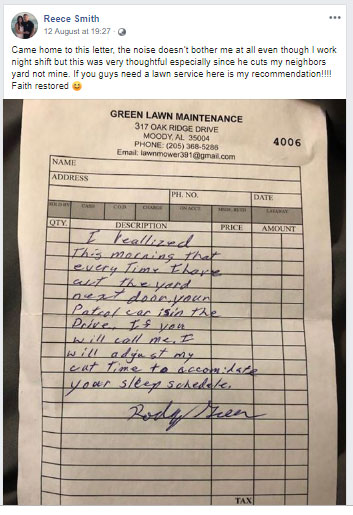 Reece Smith
12 August at 19:27 ·
Came home to this letter, the noise doesn't bother me at all even though I work
night shift but this was very thoughtful especially since he cuts my neighbors
yard not mine. If you guys need a lawn service here is my recommendation!!!!
Faith restored 😊
GREEN LAWN MAINTENANCE
317 OAK RIDGE DRIVE
MOODY, AL 35004
PHONE: (205) 368-5286
Email: lawnmower391@gmail.com
4006
NAME
ADDRESS
PH. NO.
DATE
CASH
C.O.D
CHARGE
ON ACCT.
MDSE. RETD
QTY.
DESCRIPTION
PRICE
AMOUNT
I reallized
This morning that
every Time I have
cut the yard
next door, your
Patrol car is in the
Drive. If you
will call me, I
will adjust my
cut Time to accomidate
your sleep schedule.
Rody Green
TAX